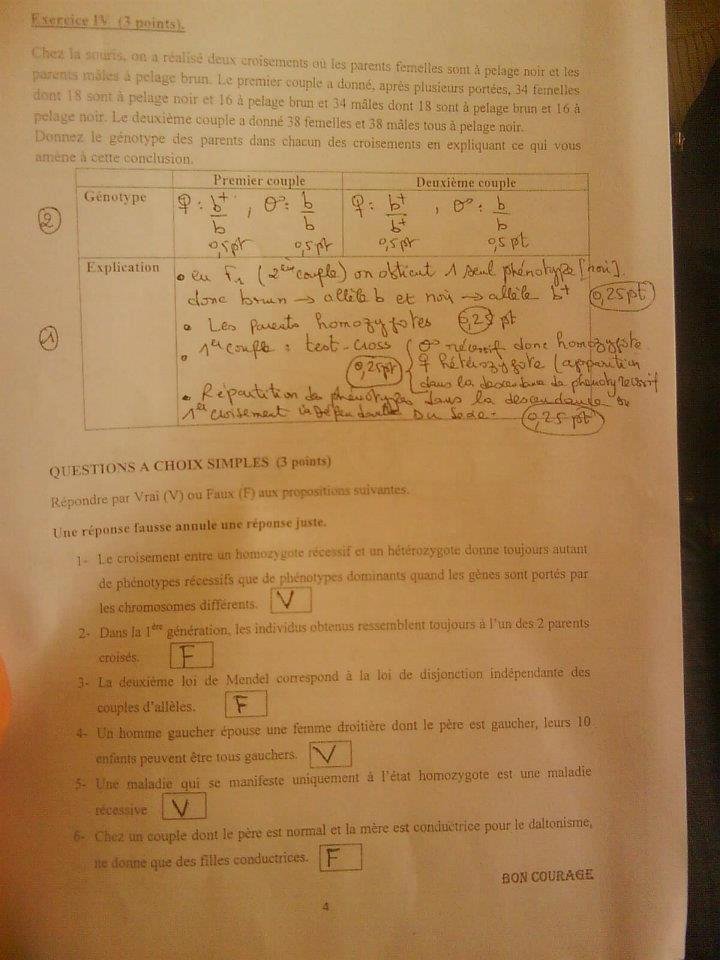 Exercice IV (3 points).
Chez la souris, on a réalisé deux croisements où les parents femelles sont à pelage noir et les
parents mâles à pelage brun. Le premier couple a donné, après plusieurs portées, 34 femelles
dont 18 sont à pelage noir et 16 à pelage brun et 34 mâles dont 18 sont à pelage brun et 16 à
pelage noir. Le deuxième couple a donné 38 femelles et 38 mâles tous à pelage noir.
Donnez le génotype des parents dans chacun des croisements en expliquant ce qui vous
amène à cette conclusion.
Premier couple Deuxième couple
Génotype ♀ : b+/b , ♂ : b/b ♀ : b+/b+ , ♂ : b/b
2
0,5pt 0,5pt 0,5pt 0,5pt
Explication • en F1 (2ème couple) on obtient 1 seul phénotype [noir].
donc brun → allèle b et noir → allèle b+ 0,25pt
• Les parents homozygotes 0,25 pt
1
• 1er couple : test-cross ♂ récessif donc homozygote
0,25pt ♀ hétérozygote (apparition
dans la descendance de phénotype récessif
• Répartition des phénotypes dans la descendance du
1er croisement indépendante du sexe. 0,25 pt
QUESTIONS A CHOIX SIMPLES (3 points)
Répondre par Vrai (V) ou Faux (F) aux propositions suivantes.
Une réponse fausse annule une réponse juste.
1- Le croisement entre un homozygote récessif et un hétérozygote donne toujours autant
de phénotypes récessifs que de phénotypes dominants quand les gènes sont portés par
les chromosomes différents. V
2- Dans la 1ère génération, les individus obtenus ressemblent toujours à l'un des 2 parents
croisés. F
3- La deuxième loi de Mendel correspond à la loi de disjonction indépendante des
couples d'allèles. F
4- Un homme gaucher épouse une femme droitière dont le père est gaucher, leurs 10
enfants peuvent être tous gauchers. V
5- Une maladie qui se manifeste uniquement à l'état homozygote est une maladie
récessive V
6- Chez un couple dont le père est normal et la mère est conductrice pour le daltonisme,
ne donne que des filles conductrices. F
BON COURAGE
4